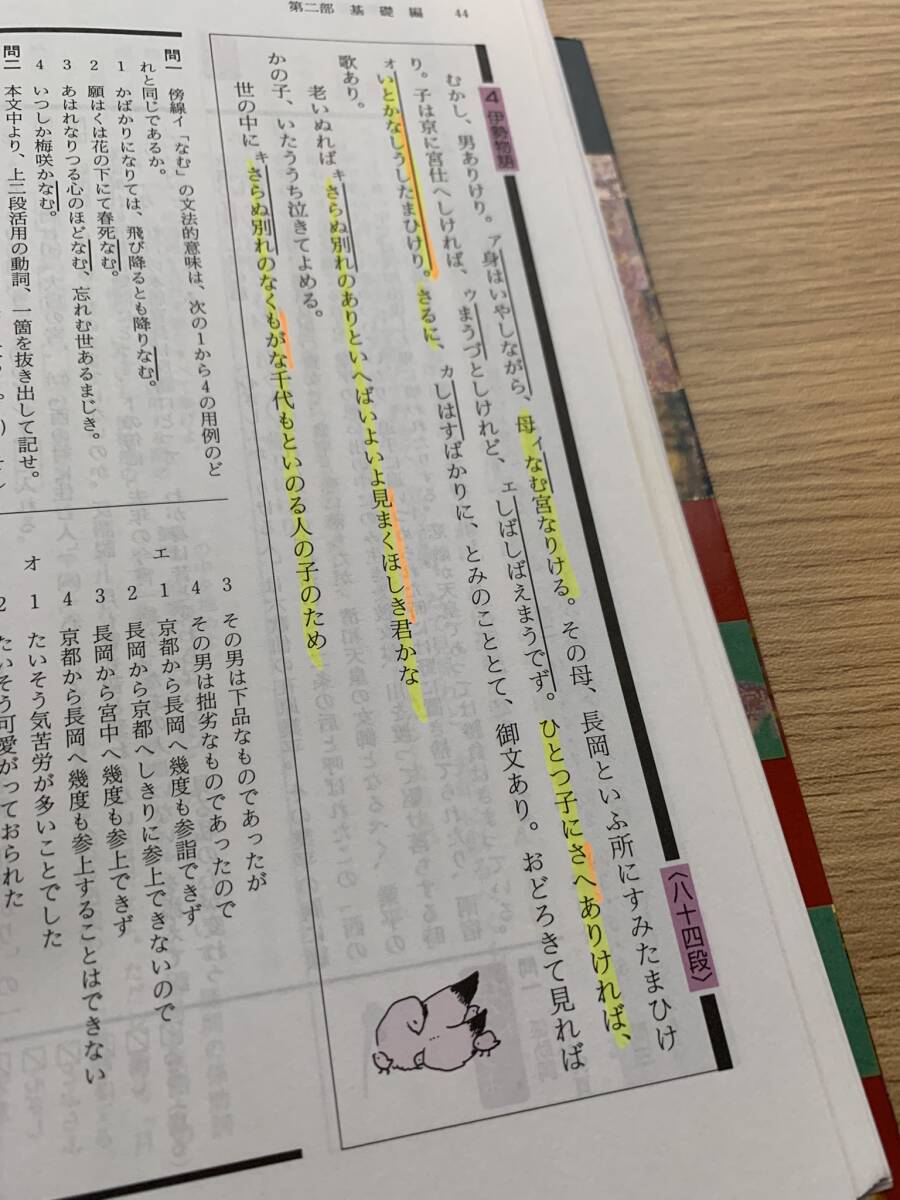 第二部 基礎編 44
4 伊勢物語 〈八十四段〉
むかし、男ありけり。ア身はいやしながら、母イなむ宮なりける。その母、長岡といふ所にすみたまひけ
り。子は京に宮仕へしければ、ウまうづとしけれど、エしばしばえまうでず。ひとつ子にさへありければ、
オいとかなしうしたまひけり。さるに、カしはすばかりに、とみのこととて、御文あり。おどろきて見れば
歌あり。
老いぬればキさらぬ別れのありといへばいよいよ見まくほしき君かな
かの子、いたううち泣きてよめる。
世の中にキさらぬ別れのなくもがな千代もといのる人の子のため
問一 傍線イ「なむ」の文法的意味は、次の1から4の用例のど
れと同じであるか。
1 かばかりになりては、飛び降るとも降りなむ。
2 願はくは花の下にて春死なむ。
3 あはれなりつる心のほどなむ、忘れむ世あるまじき。
4 いつしか梅咲かなむ。
問二 本文中より、上二段活用の動詞、一箇を抜き出して記せ。
3 その男は下品なものであったが
4 その男は拙劣なものであったので
エ 1 京都から長岡へ幾度も参詣できず
2 長岡から京都へしきりに参上できないので
3 長岡から宮中へ幾度も参上できず
4 京都から長岡へ幾度も参上することはできない
オ 1 たいそう気苦労が多いことでした
2 たいそう可愛がっておられた